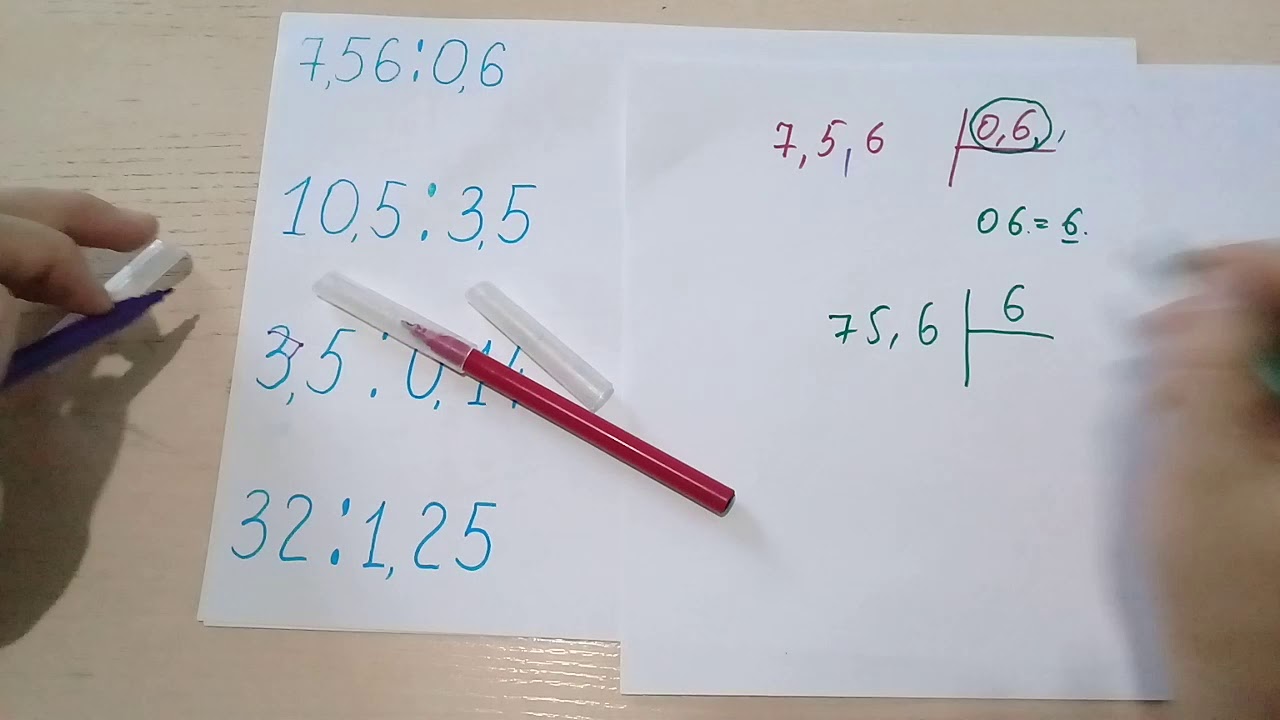 7,56:0,6
10,5:3,5
3,5:0,14
32:1,25
7,5,6 0,6,,
06.=6.
75,6 6